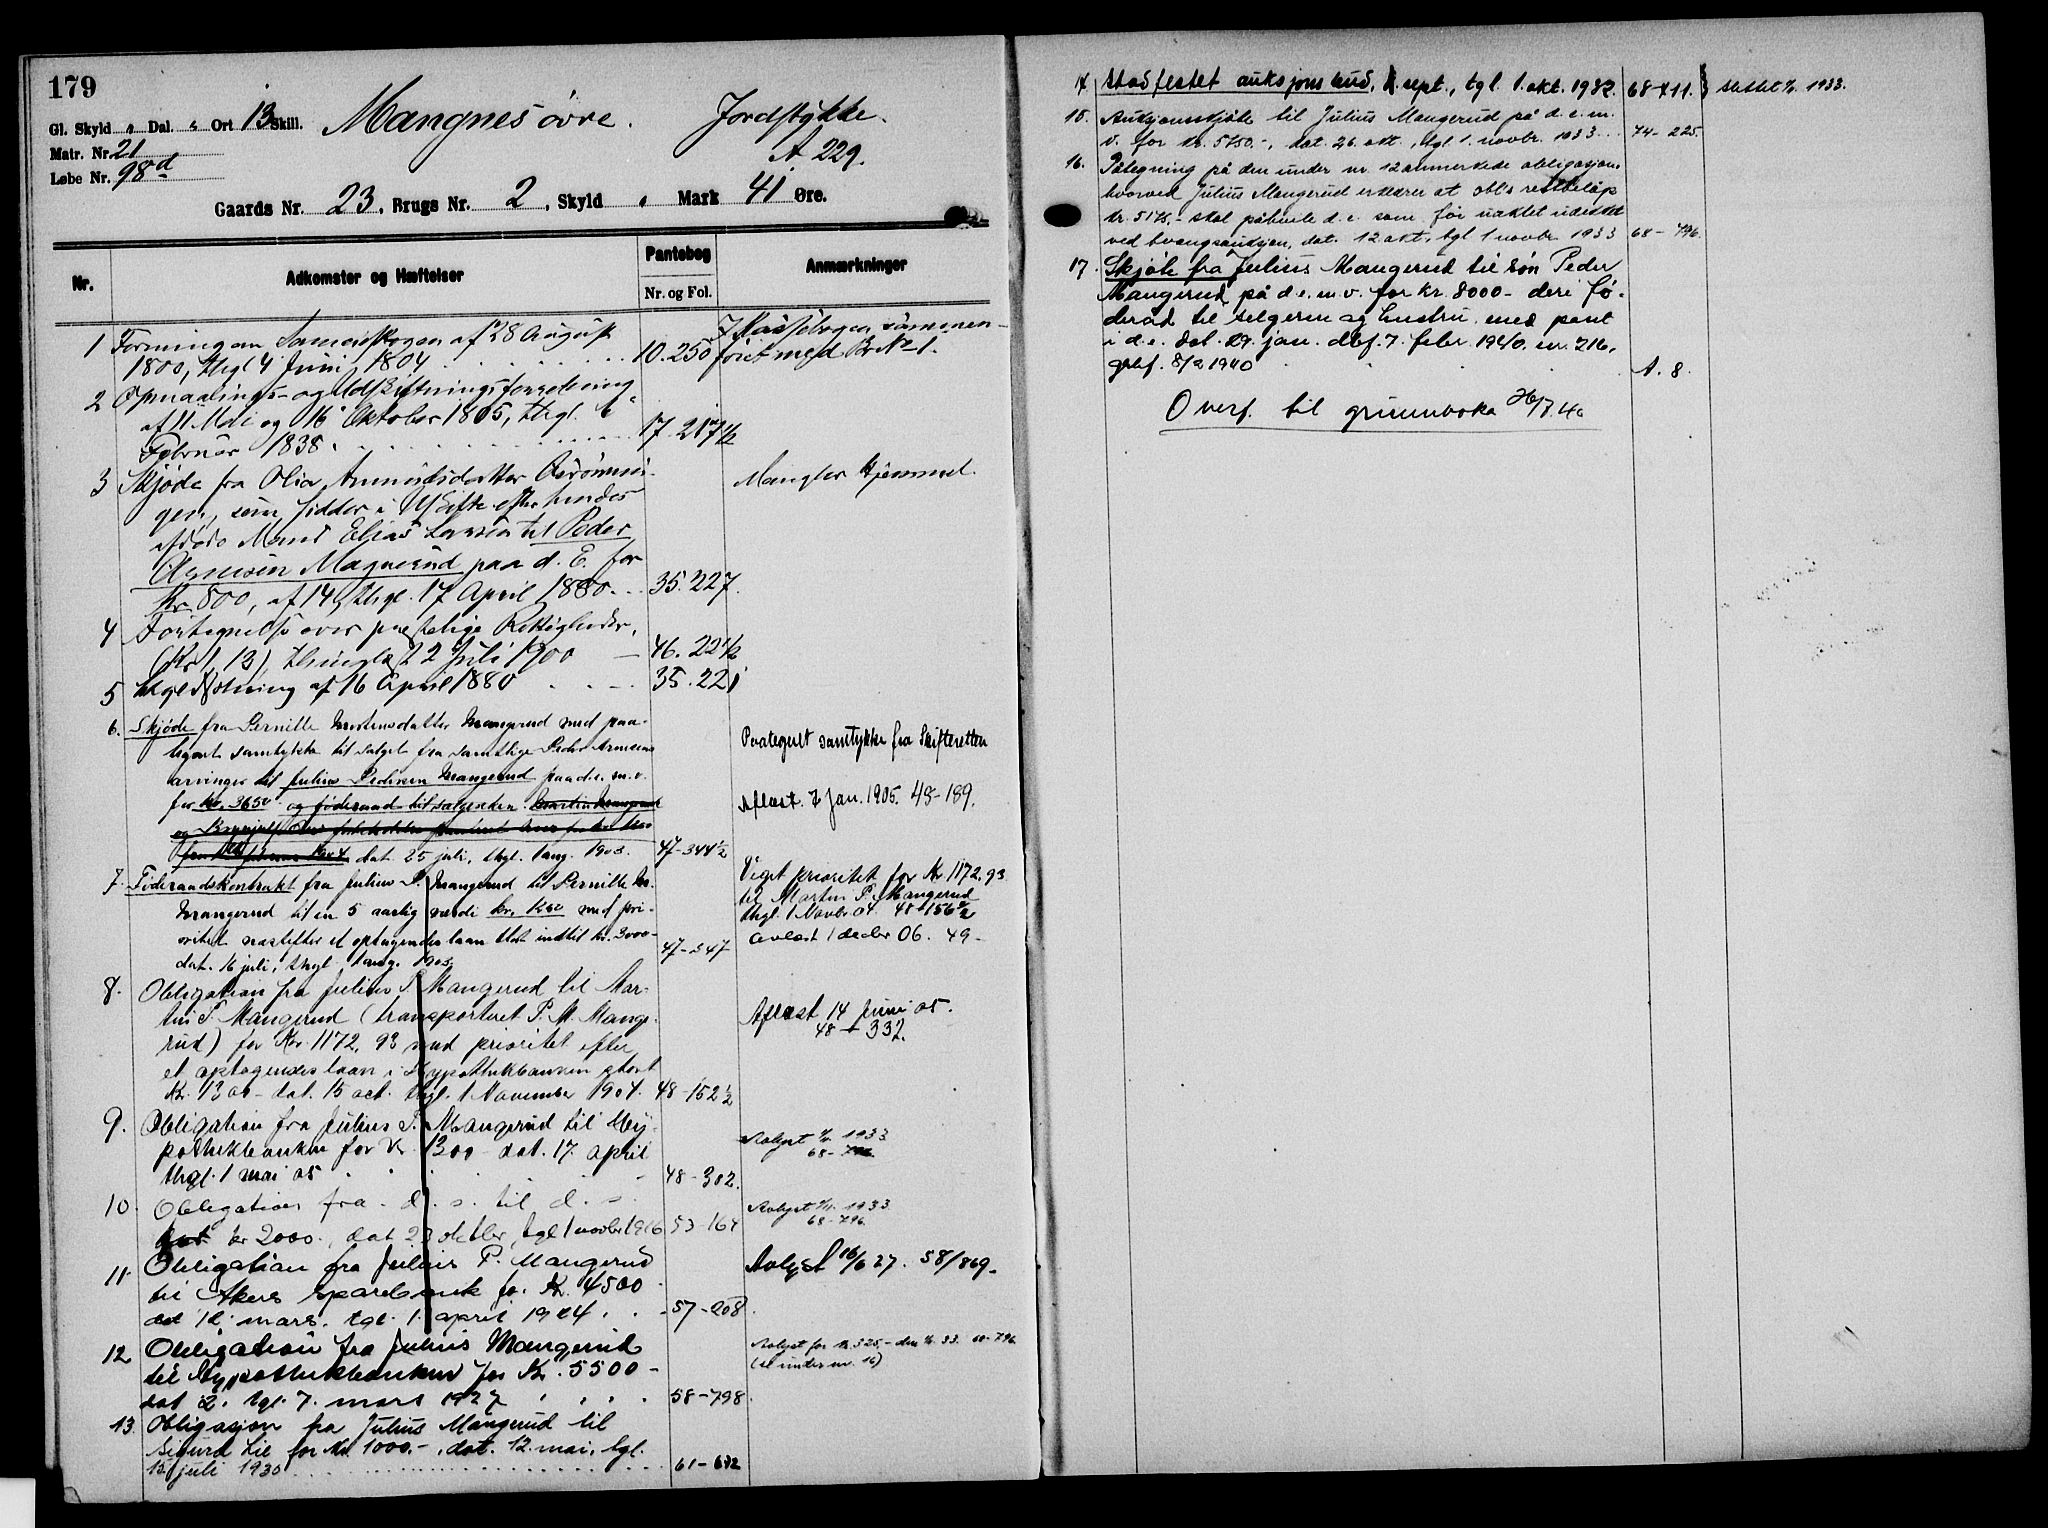 179
Gl. Skyld „ Dal. „ Ort 13 Skill. Mangnes øvre. Jordstykke.
Matr. Nr. 21
A 229.
Løbe Nr. 98d
Gaards Nr. 23, Brugs Nr. 2, Skyld „ Mark 41 Øre.
Nr. Adkomster og Hæftelser Pantebog Anmærkninger
Nr. og Fol.
1 Forening om Sameieskogen af 28 August
1800, thgl 4 Juni 1804 10.250
I Kassebogen sammen-
ført med Br No 1.
2 Opmaalings- og Udskiftningsforretning
af 11 Mai og 16 Oktober 1805, thgl. 6
Februar 1838. 17.217½
3 Skjøde fra Olia Amundsdatter
gen, som sidder i Uskifte efter hendes
afdøde Mand Elias Larsen til Peder
Arnesen Magnerud paa d. E. for
Kr. 800, af 14, thgl. 17 April 1880. 35.227.
Mangler Hjemmel.
4 Fortegnelse over pligtige Rettigheder,
(Kr 1,13), thinglæst 2 Juli 1900 46.22½
5 thgl af 16 April 1880 35.221
6. Skjøde fra Pernille Mortensdatter Mangerud med paa-
tegnet samtykke til salget fra samtlige Peder Arnesens
arvinger til Julius Pedersen Mangerud paa d.e. m.v.
for kr. 3650 og føderaad til sælgersken
dat. 25 juli, thgl. 1 aug. 1903. 47-344½
Paategnet samtykke fra Skifteretten
Aflæst 7 Jan. 1905. 48-189.
7. Føderaadskontrakt fra Julius P. Mangerud til Pernille M.
Mangerud til en 5 aarlig værdi kr. med pri-
oritet næstefter et optagendes laan stort indtil kr. 3000-
dat. 16 juli, thgl 1 aug. 1903. 47-347
Viget prioritet for Kr. 1172,93
til Martin P. Mangerud
thgl. 1 Novbr 04 48-156½
avlæst 1 decbr 06. 49-
8. Obligation fra Julius P. Mangerud til Mar-
tin P. Mangerud (transporteret P. M. Mange-
rud) for Kr. 1172,93 med prioritet efter
et optagendes laan i Hypothekbanken stort
Kr. 1300- dat. 15 oct. thgl. 1 November 1904. 48-152½
Aflæst 14 Juni 05.
48-332.
9. Obligation fra Julius P. Mangerud til Hy-
pothekbanken for Kr. 1300 dat. 17. april
thgl. 1 mai 05 48-302.
Avlyst 1933
68-796
10. Obligation fra d. s. til d. s.
kr 2000., dat 23 oktbr, tgl 1 novbr 1916 53-164
Avlyst 1933
68-796
11. Obligation fra Julius P. Mangerud
til Akers sparebank for Kr. 4500
dat 12. mars. tgl. 1. april 1924. 57-208.
Avlyst 16/6 27. 58/869.
12. Obligation fra Julius Mangerud
til Hypothekbanken for Kr. 5500-
dat 2. tgl. 7. mars 1927 58-798.
Avlyst for kr. 325,- den 33. 68-796
(se under nr. 16)
13. Obligasjon fra Julius Mangerud til
Sigurd Lie for Kr. 1000.-, dat. 12 mai, tgl.
15 juli 1930 61-672
14 Stadfestet auksjonsbud, sept., tgl. 1. okt. 1932. 68-411. slettet 1933.
15. Auksjonsskjøte til Julius Mangerud på d. e. m.
v. for kr. 5750.-, dat. 26. okt., tgl 1. novbr. 1933 74-225.
16. Påtegning på den under nr. 12 anmerkede obligasjon
hvorved Julius Mangerud erklærer at obl's restbeløp
kr. 5175,- skal påhvile d. e. som før uaktet udestet
ved tvangsauksjon, dat. 12 okt., tgl 1 novbr. 1933 68-796.
17. Skjøte fra Julius Mangerud til søn Peder
Mangerud på d. e. m. v. for kr. 8000- deri fø-
deråd til selgeren og hustru med pant
i d. e. dat. 29. jan. dbf. 7. febr. 1940. nr. 216.
gbf. 8/2 1940 A. 8.
Overf. til grunnboka 26/7.40